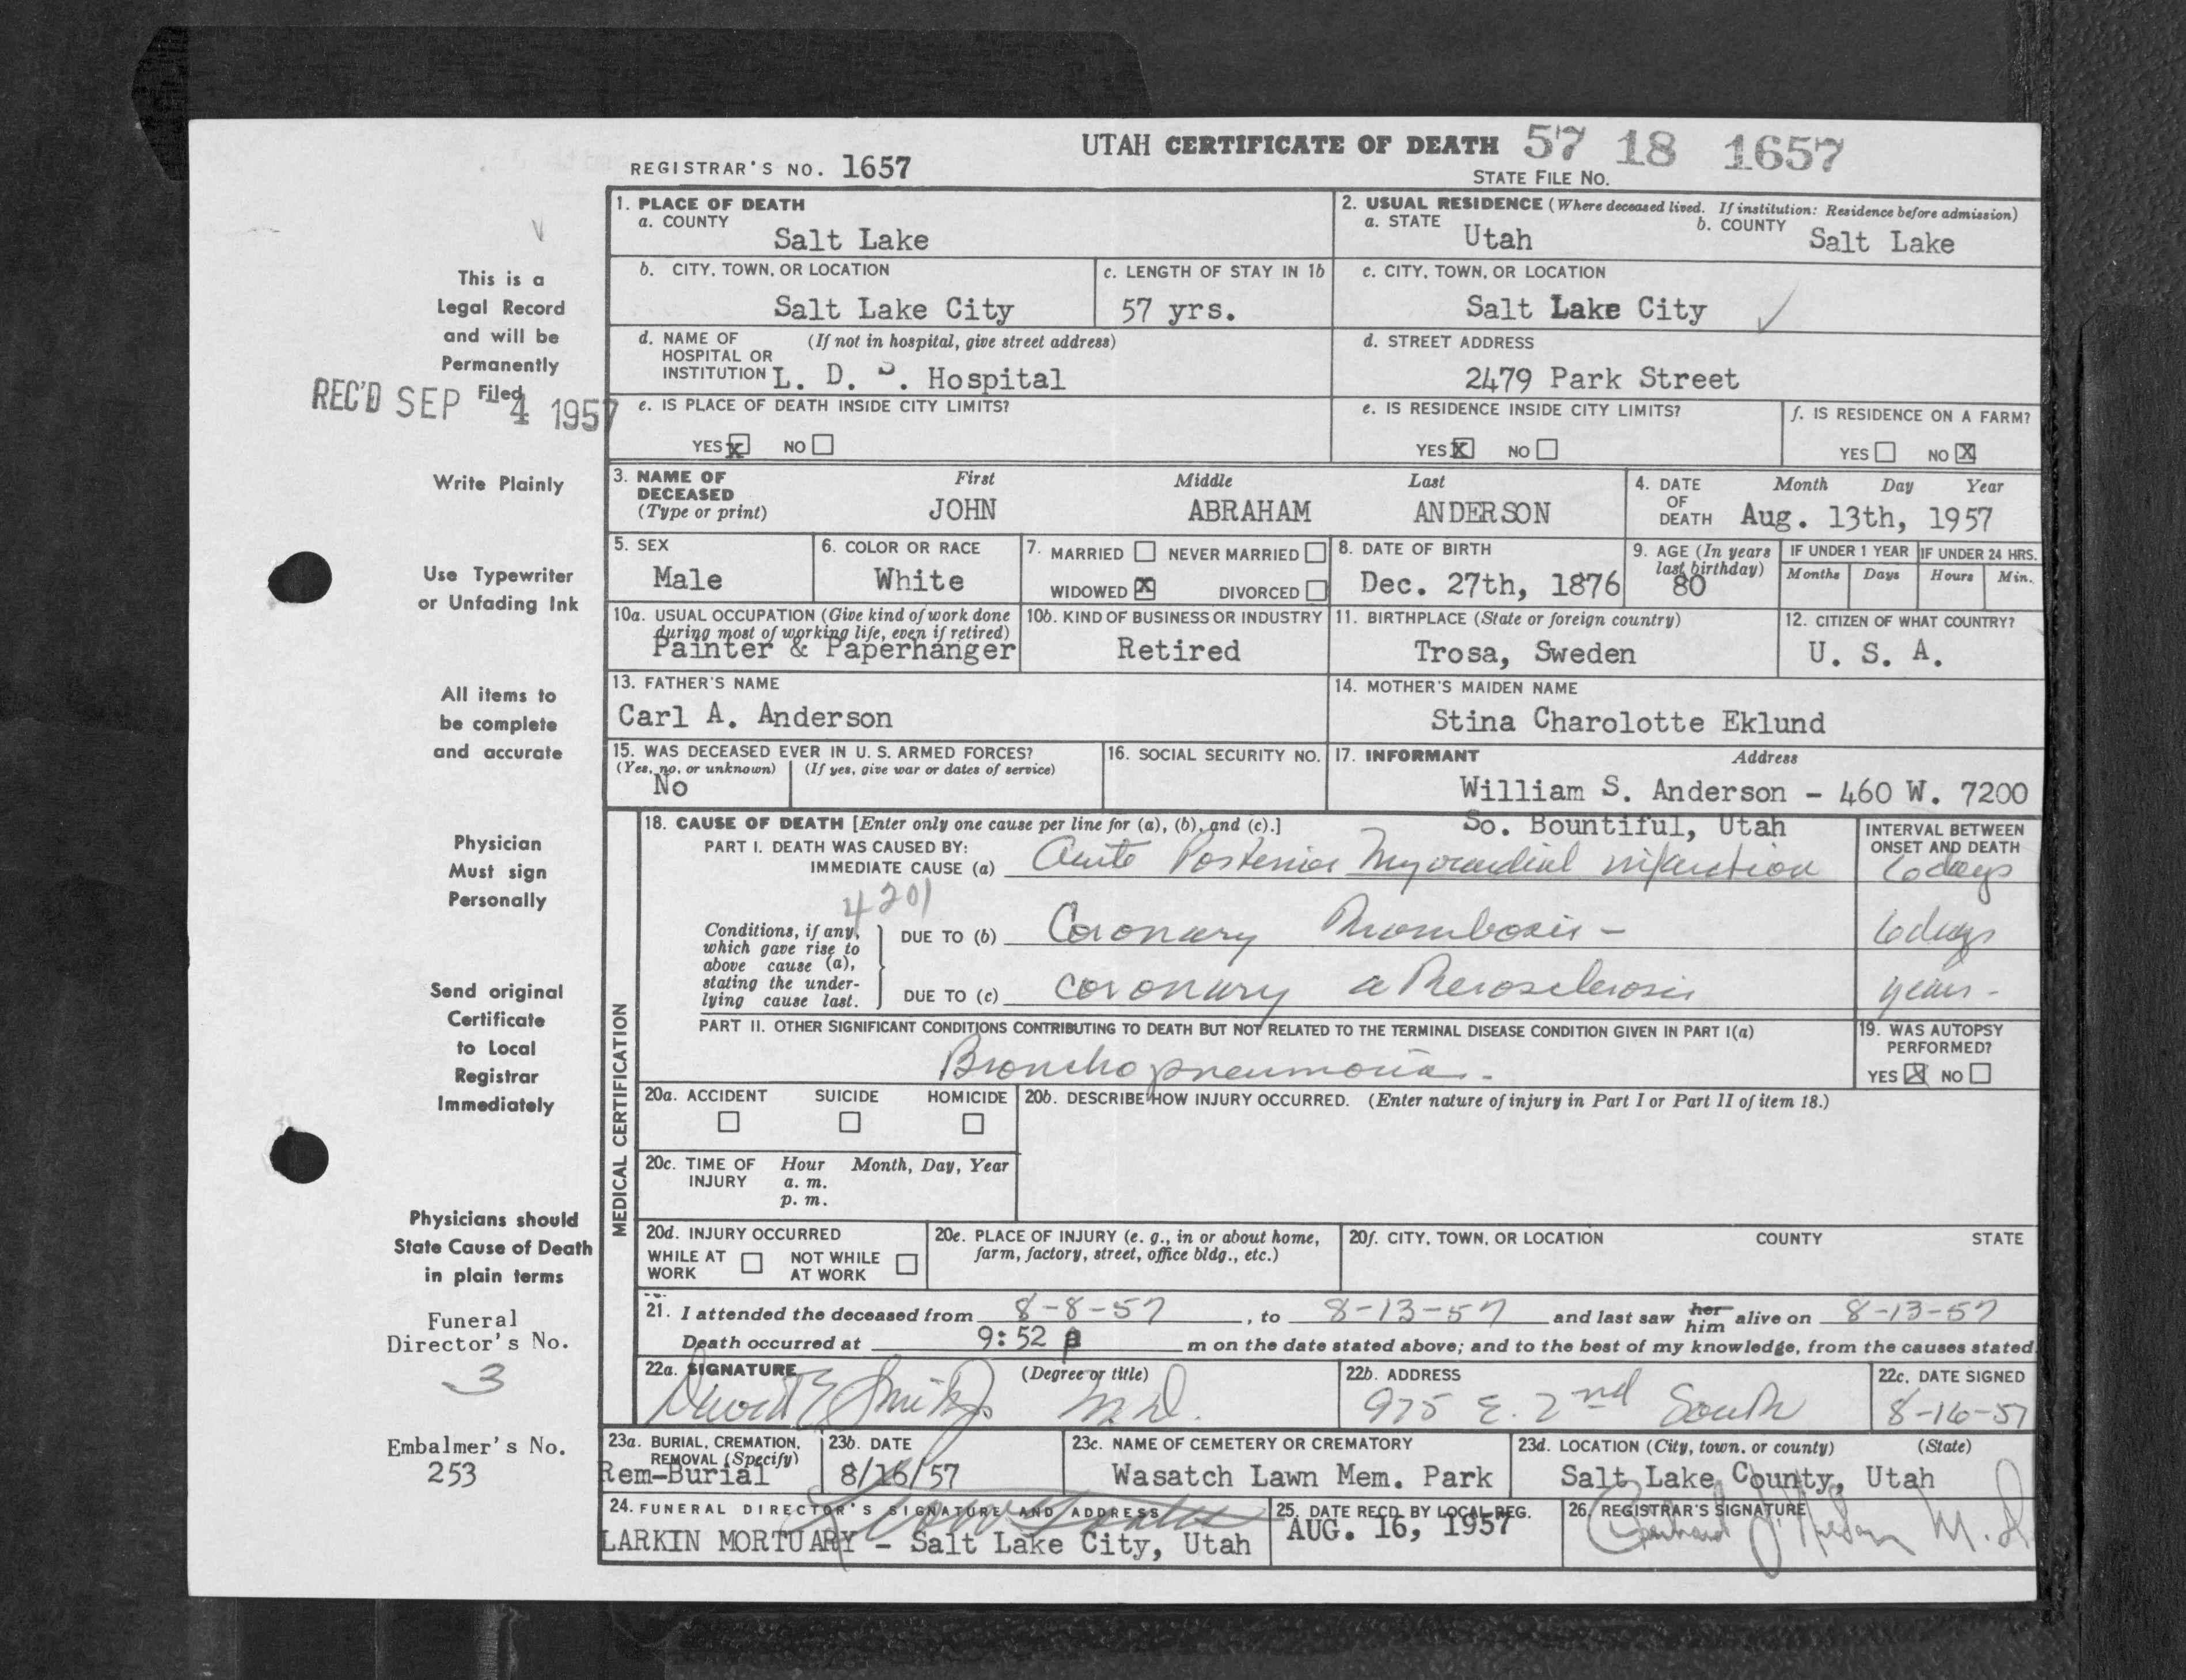 UTAH CERTIFICATE OF DEATH 57 18 1657
REGISTRAR'S NO. 1657
STATE FILE NO.
1. PLACE OF DEATH
a. COUNTY
Salt Lake
2. USUAL RESIDENCE (Where deceased lived. If institution: Residence before admission)
a. STATE Utah b. COUNTY Salt Lake
b. CITY, TOWN, OR LOCATION
Salt Lake City
c. LENGTH OF STAY IN 1b
57 yrs.
c. CITY, TOWN, OR LOCATION
Salt Lake City
d. NAME OF (If not in hospital, give street address)
HOSPITAL OR
INSTITUTION L. D. S. Hospital
d. STREET ADDRESS
2479 Park Street
e. IS PLACE OF DEATH INSIDE CITY LIMITS?
YES X NO
e. IS RESIDENCE INSIDE CITY LIMITS?
YES X NO
f. IS RESIDENCE ON A FARM?
YES NO X
3. NAME OF DECEASED (Type or print)
First Middle Last
JOHN ABRAHAM ANDERSON
4. DATE OF DEATH Month Day Year
Aug. 13th, 1957
5. SEX
Male
6. COLOR OR RACE
White
7. MARRIED NEVER MARRIED
WIDOWED X DIVORCED
8. DATE OF BIRTH
Dec. 27th, 1876
9. AGE (In years
last birthday)
80
IF UNDER 1 YEAR IF UNDER 24 HRS.
Months Days Hours Min.
10a. USUAL OCCUPATION (Give kind of work done
during most of working life, even if retired)
Painter & Paperhanger
10b. KIND OF BUSINESS OR INDUSTRY
Retired
11. BIRTHPLACE (State or foreign country)
Trosa, Sweden
12. CITIZEN OF WHAT COUNTRY?
U. S. A.
13. FATHER'S NAME
Carl A. Anderson
14. MOTHER'S MAIDEN NAME
Stina Charolotte Eklund
15. WAS DECEASED EVER IN U. S. ARMED FORCES?
(Yes, no, or unknown) (If yes, give war or dates of service)
No
16. SOCIAL SECURITY NO.
17. INFORMANT Address
William S. Anderson - 460 W. 7200
So. Bountiful, Utah
MEDICAL CERTIFICATION
18. CAUSE OF DEATH [Enter only one cause per line for (a), (b), and (c).]
INTERVAL BETWEEN
ONSET AND DEATH
PART I. DEATH WAS CAUSED BY:
IMMEDIATE CAUSE (a) Acute Posterior Myocardial infarction 6 days
4201
Conditions, if any,
which gave rise to
above cause (a),
stating the under-
lying cause last.
DUE TO (b) Coronary Thrombosis - 6 days
DUE TO (c) coronary atherosclerosis years -
PART II. OTHER SIGNIFICANT CONDITIONS CONTRIBUTING TO DEATH BUT NOT RELATED TO THE TERMINAL DISEASE CONDITION GIVEN IN PART I(a)
Bronchopneumonia -
19. WAS AUTOPSY
PERFORMED?
YES X NO
20a. ACCIDENT SUICIDE HOMICIDE
20b. DESCRIBE HOW INJURY OCCURRED. (Enter nature of injury in Part I or Part II of item 18.)
20c. TIME OF INJURY Hour Month, Day, Year
a. m.
p. m.
20d. INJURY OCCURRED
WHILE AT WORK NOT WHILE AT WORK
20e. PLACE OF INJURY (e. g., in or about home,
farm, factory, street, office bldg., etc.)
20f. CITY, TOWN, OR LOCATION COUNTY STATE
21. I attended the deceased from 8-8-57, to 8-13-57 and last saw her him alive on 8-13-57
Death occurred at 9:52 p m on the date stated above; and to the best of my knowledge, from the causes stated.
22a. SIGNATURE (Degree or title)
David E Smith M.D.
22b. ADDRESS
975 E. 2nd South
22c. DATE SIGNED
8-16-57
23a. BURIAL, CREMATION,
REMOVAL (Specify)
Rem-Burial
23b. DATE
8/16/57
23c. NAME OF CEMETERY OR CREMATORY
Wasatch Lawn Mem. Park
23d. LOCATION (City, town, or county) (State)
Salt Lake County, Utah
24. FUNERAL DIRECTOR'S SIGNATURE AND ADDRESS
LARKIN MORTUARY - Salt Lake City, Utah
25. DATE RECD. BY LOCAL REG.
AUG. 16, 1957
26. REGISTRAR'S SIGNATURE
M. D.
This is a
Legal Record
and will be
Permanently
Filed
REC'D SEP 4 1957
Write Plainly
Use Typewriter
or Unfading Ink
All items to
be complete
and accurate
Physician
Must sign
Personally
Send original
Certificate
to Local
Registrar
Immediately
Physicians should
State Cause of Death
in plain terms
Funeral
Director's No.
3
Embalmer's No.
253